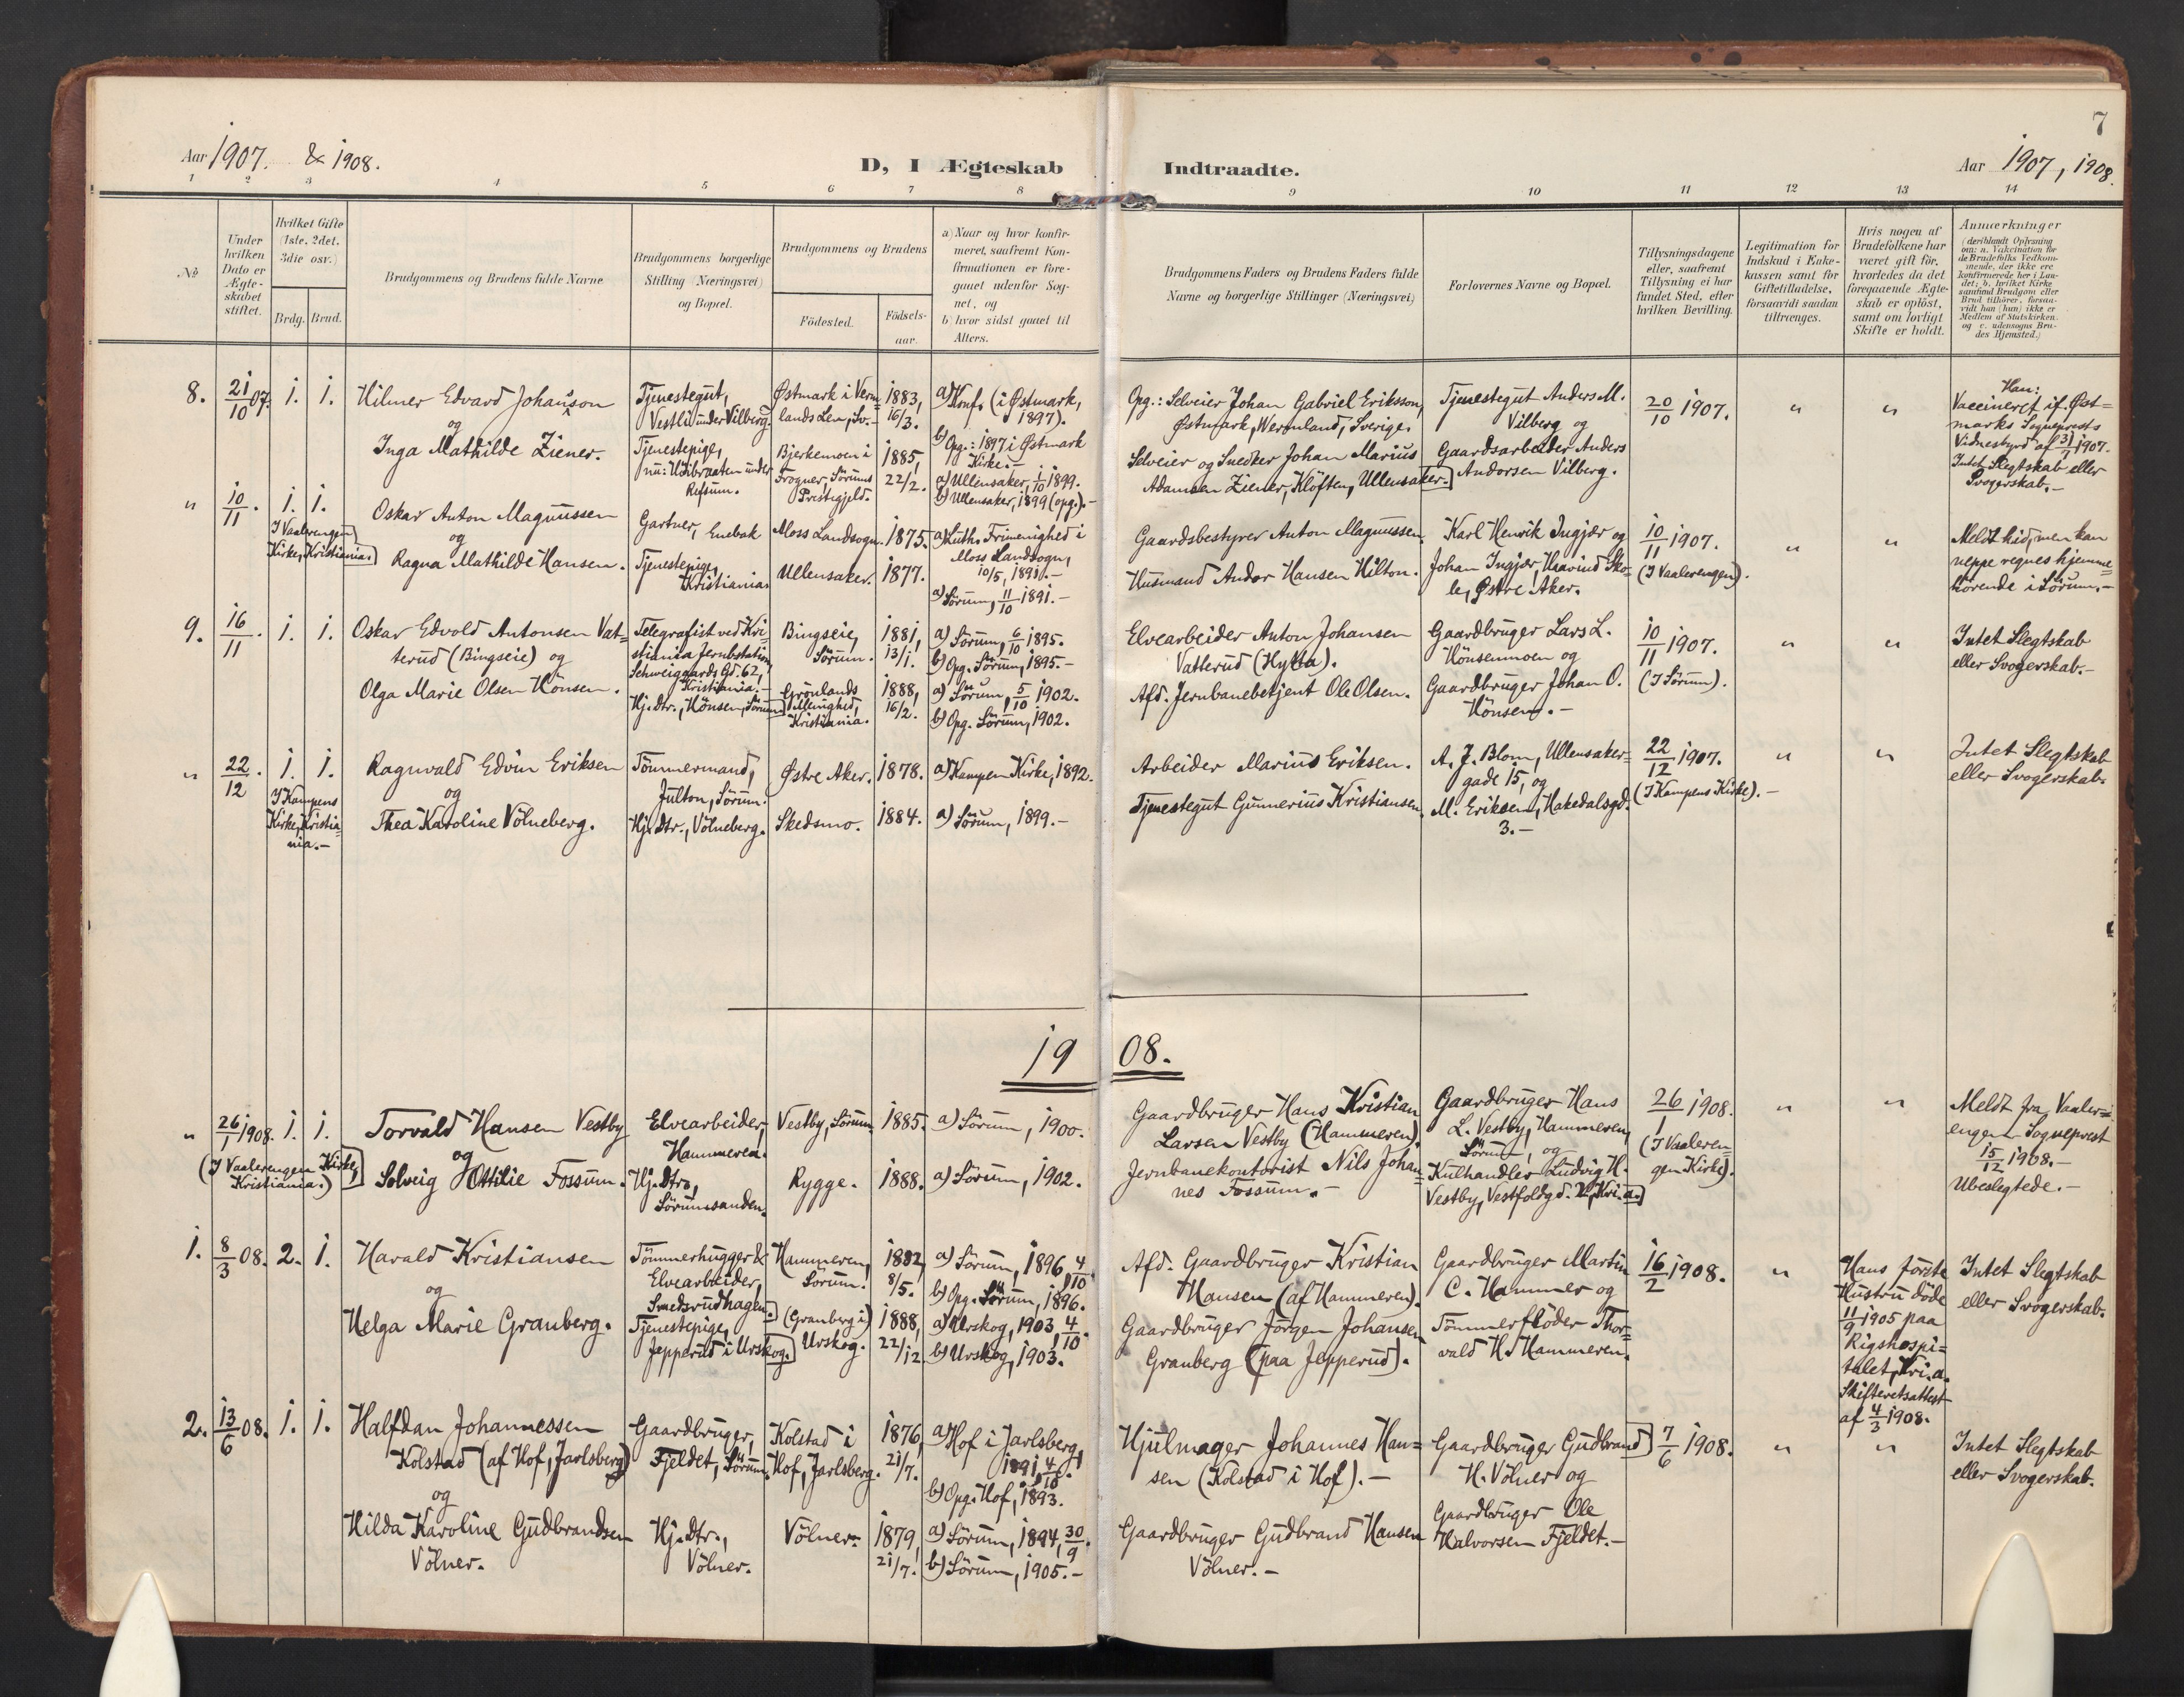 Aar 1907. & 1908.
D, I Ægteskab
Indtraadte.
Aar 1907, 1908.
7
1 2 3 4 5 6 7 8 9 10 11 12 13 14
No
Under
hvilken
Dato er
Ægte-
skabet
stiftet.
Hvilket Gifte
(1ste, 2det,
3die osv.)
Brdg. Brud.
Brudgommens og Brudens fulde Navne
Brudgommens borgerlige
Stilling (Næringsvei)
og Bopæl.
Brudgommens og Brudens
Fødested.
Fødsels-
aar.
a) Naar og hvor konfir-
meret, saafremt Kon-
firmationen er fore-
gaaet udenfor Sog-
net, og
b) hvor sidst gaaet til
Alters.
Brudgommens Faders og Brudens Faders fulde
Navne og borgerlige Stillinger (Næringsvei)
Forlovernes Navne og Bopæl.
Tillysningsdagene
eller, saafremt
Tillysning ei har
fundet Sted, efter
hvilken Bevilling.
Legitimation for
Indskud i Enke-
kassen samt for
Giftetilladelse,
forsaavidt saadan
tiltrænges.
Hvis nogen af
Brudefolkene har
været gift før,
hvorledes da det
foregaaende Ægte-
skab er opløst,
samt om lovligt
Skifte er holdt.
Anmærkninger
(deriblandt Oplysning
om: a. Vakcination for
de Brudefolks Vedkom-
mende, der ikke ere
konfirmerede her i Lan-
det; b. hvilket Kirke
samfund Brudgom eller
Brud tilhører, forsaa-
vidt han (hun) ikke er
Medlem af Statskirken
og c. udensogns Bru-
des Hjemsted.)
8. 21/10 07. 1. 1.
Hilmer Edvard Johansson
og
Inga Mathilde Ziener.
Tjenestegut,
Vestli under Vilberg.
Tjenestepige,
nu: Udibraaten under
Refsum.
Østmark i Verm=
lands Len, Sv.-
Bjerkemoen i
Frogner, Sörums
Prestegjeld.
1883,
16/3.
1885,
22/2.
a) Konf. (i Østmark,
1897).
b) Opg.: 1897 i Østmark
Kirke.-
a) Ullensaker, 1/10 1899.
b) Ullensaker, 1899 (opg.).-
Opg.: Selveier Johan Gabriel Eriksson,
Østmark, Wermland, Sverige.
Selveier og Snedker Johan Marius
Adamsen Ziener, Klöften, Ullensaker.
Tjenestegut Anders M.
Vilberg og
Gaardsarbeider Anders
Andersen Vilberg.
20/10 1907.
"
"
Han:
Vaccineret if. Øst=
marks Sogneprests
Vidnesbyrd af 31/1 1907.
Intet Slegtskab eller
Svogerskab.-
" 10/11. 1. 1.
I Vaalerengen
Kirke, Kristiania.
Oskar Anton Magnussen
og
Ragna Mathilde Hansen.
Gartner, Enebak
Tjenestepige,
Kristiania.
Moss Landsogn.
Ullensaker.
1875.
1877.
a) Luth. Frimenighed i
Moss Landsogn,
10/5, 1891.-
a) Sörum, 11/10 1891.-
Gaardsbestyrer Anton Magnussen.
Husmand Andor Hansen Hilton.
Karl Henrik Ingjør og
Johan Ingjør, Haavind Sko-
le, Østre Aker.
10/11 1907.
(I Vaalerengen).
"
"
Meldt hid, men kan
neppe regnes hjemme=
hörende i Sörum.-
9. 16/11. 1. 1.
Oskar Edvold Antonsen Vat=
terud (Bingseie) og
Olga Marie Olsen Hönsen.
Telegrafist ved Kri-
stiania Jernbstation,
Schweigaards Gd. 62,
Kristiania.-
Hj. Dtr., Hönsen, Sörum
Bingseie,
Sörum.
Grönlands
Menighed,
Kristiania.
1881,
13/1.
1888,
16/2.
a) Sörum, 6/10 1895.
b) Opg. Sörum, 1895.-
a) Sörum, 5/10 1902.
b) Opg. Sörum, 1902.
Elvearbeider Anton Johansen
Vatterud (Hylta).
Afd. Jernbanebetjent Ole Olsen.
Gaardbruger Lars L.
Hönsenmoen og
Gaardbruger Johan O.
Hönsen.-
10/11 1907.
(I Sörum).
"
"
Intet Slegtskab
eller Svogerskab.-
" 22/12. 1. 1.
I Kampens
Kirke, Kristia-
nia.-
Ragnvald Edvin Eriksen
og
Thea Karoline Völneberg.
Tömmermand,
Julton, Sörum.
Hj. Dtr., Völneberg.
Østre Aker.
Skedsmo.
1878.
1884.
a) Kampen Kirke, 1892.
a) Sörum, 1899.-
Arbeider Marius Eriksen.
Tjenestegut Gunnerius Kristiansen.
A. J. Blom, Ullensaker=
gade 15, og
M. Eriksen, Hakedalsgd.
3.-
22/12 1907.
(I Kampens Kirke).-
"
"
Intet Slegtskab
eller Svogerskab.
1908.
" 26/1 1908. 1. 1.
(I Vaalerengen Kirke,
Kristiania.)
Torvald Hansen Vestby
og
Solveig Ottilie Fossum.
Elvearbeider,
Hammeren.
Hj. Dtr.,
Sörumsanden.
Vestby, Sörum.
Rygge.
1885.
1888.
a) Sörum, 1900.
a) Sörum, 1902.
Gaardbruger Hans Kristian
Larsen Vestby (Hammeren).
Jernbanekontorist Nils Johan=
nes Fossum.-
Gaardbruger Hans
L. Vestby, Hammeren,
Sörum, og
Kulhandler Ludvig H.
Vestby, Vestfoldgd. Kri.a.
26/1 1908.
(I Vaaleren-
gen Kirke).
"
"
Meldt fra Vaaler=
engen Sogneprest
15/12 1908.-
Ubeslegtede.-
1. 8/3 08. 2. 1.
Harald Kristiansen
og
Helga Marie Granberg.
Tömmerhugger &
Elvearbeider,
Smedsrudhagen.
Tjenestepige,
Jepperud i Urskog.
Hammeren,
Sörum.
(Granberg i)
Urskog.
1882,
8/5.
1888,
22/12
a) Sörum, 1896, 4/10.
b) Opg. Sörum, 1896.
a) Urskog, 1903, 4/10.
b) Urskog, 1903.
Afd. Gaardbruger Kristian
Hansen (af Hammeren).
Gaardbruger Jörgen Johansen
Granberg (paa Jepperud).
Gaardbruger Martin
C. Hammer og
Tömmerflöder Thor=
vald H. Hammeren.
16/2 1908.
"
Hans förste
Hustru döde
11/9 1905 paa
Rigshospi=
talet, Kri.a.
Skifteretsattest
af 4/3 1908.
Intet Slegtskab
eller Svogerskab.
2. 13/6 08. 1. 1.
Halfdan Johannessen
Kolstad (af Hof, Jarlsberg)
og
Hilda Karoline Gudbrandsen
Völner.
Gaardbruger,
Fjeldet, Sörum.
Hj. Dtr.,
Völner.
Kolstad i
Hof, Jarlsberg.
Völner.
1876,
21/7.
1879,
21/7.
a) Hof i Jarlsberg,
1891, 4/10.
b) Opg. Hof, 1893.
a) Sörum, 1894, 30/9.
b) Sörum, 1905.-
Hjulmager Johannes Han=
sen (Kolstad i Hof).-
Gaardbruger Gudbrand Hansen
Völner.-
Gaardbruger Gudbrand
H. Völner og
Gaardbruger Ole
Halvorsen Fjeldet.-
7/6 1908.
"
"
Intet Slegtskab
eller Svogerskab.